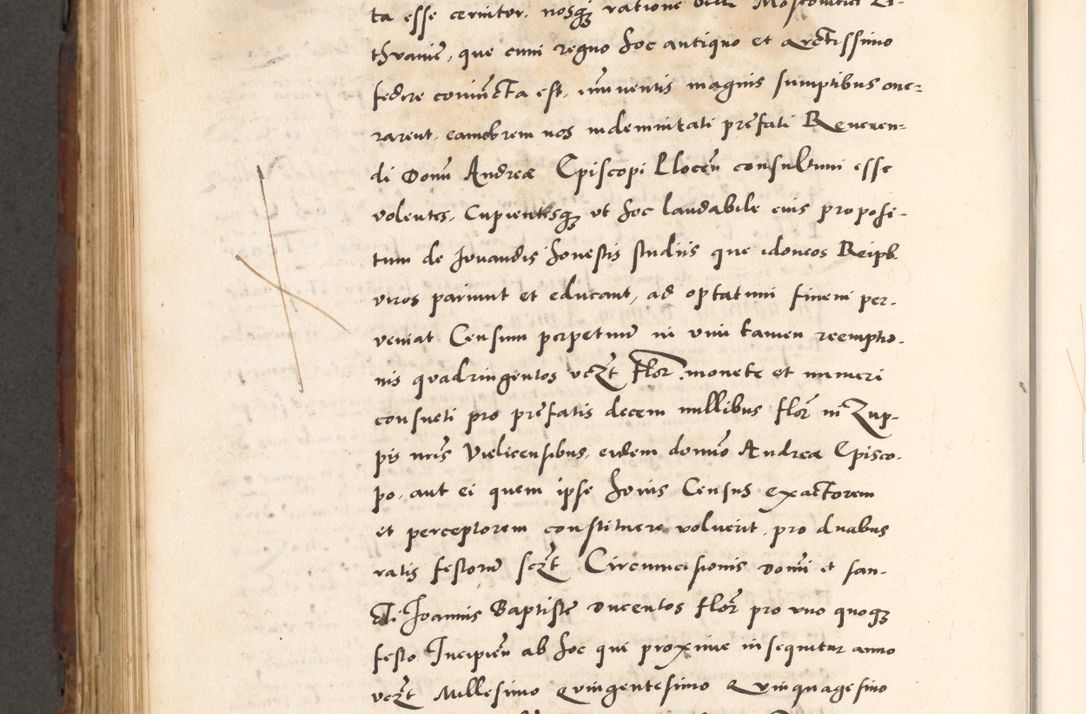 ta esse cernitur, nosq; ratione belli Moscovitici Li-
thvanie, que cum regno hoc antiquo et arctissimo
federe coniuncta est, iuventis magnis sumptibus one-
rarent, eamobrem nos indemnitati prefati Reveren-
di Domi Andree Episcopi Plocen consultum esse
volentes, Cupientesq; ut hoc laudabile eius proposi-
tum de Iuvandis honestis studiis que idoneos Reipb.
viros pariunt et educant, ad optatum finem per-
veniat Censum perpetuum in vim tamen reemptio-
nis quadringentos vczt Flor. monete et numeri
consueti pro prefatis decem millibus flor in Zup-
pis nris Vielicensibus, eidem domino Andree Episco-
po, aut ei quem ipse huius Census exactorem
et perceptorem constituere voluerit, pro duabus
ratis festorum sczt Circumcisionis Domi et san-
cti Joannis Baptiste ducentos flor pro uno quoq;
festo Incipien ab hoc que proxime insequitur anno
vczt Millesimo Quingentesimo Quinquagesimo